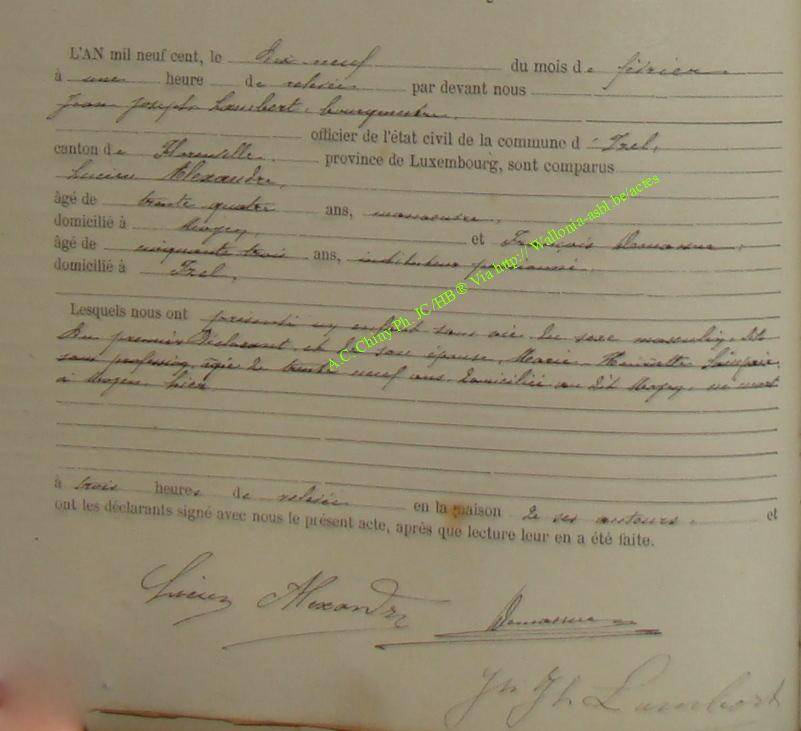 L'AN mil neuf cent, le dix neuf du mois de février
à une heure de relevée par devant nous
Jean Joseph Lambert, bourgmestre,
officier de l'état civil de la commune d'Izel,
canton de Florenville, province de Luxembourg, sont comparus
Lucien Alexandre,
âgé de trente quatre ans, manoeuvre,
domicilié à Moyen, et François Demasure,
âgé de cinquante trois ans, instituteur pensionné,
domicilié à Izel,
Lesquels nous ont présenté un enfant sans vie du sexe masculin, dit
du premier déclarant, et de son épouse, Marie Henriette
sans profession, âgée de trente neuf ans, domiciliée au dit Moyen, né mort
à Moyen, hier
à trois heures de relevée en la maison de ses auteurs, et
ont les déclarants signé avec nous le présent acte, après que lecture leur en a été faite.
Lucien Alexandre
Demasure
Jn Jh Lambert
A.C. Chiny Ph. JC/HB® Via http:// Wallonia-asbl.be/actes